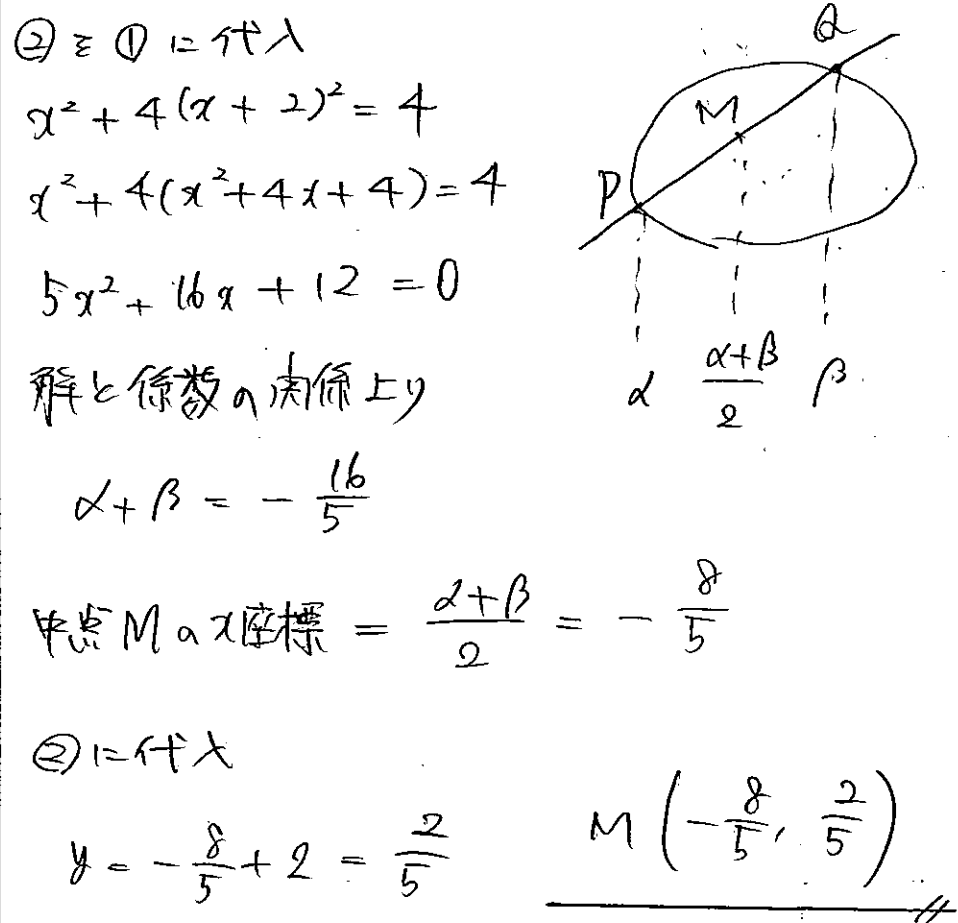 ②を①に代入
x² + 4(x + 2)² = 4
x² + 4(x² + 4x + 4) = 4
5x² + 16x + 12 = 0
解と係数の関係より
α + β = - 16/5
中点Mのx座標 = (α+β)/2 = - 8/5
②に代入
y = - 8/5 + 2 = 2/5
M(-8/5, 2/5)
Q
M
P
α (α+β)/2 β